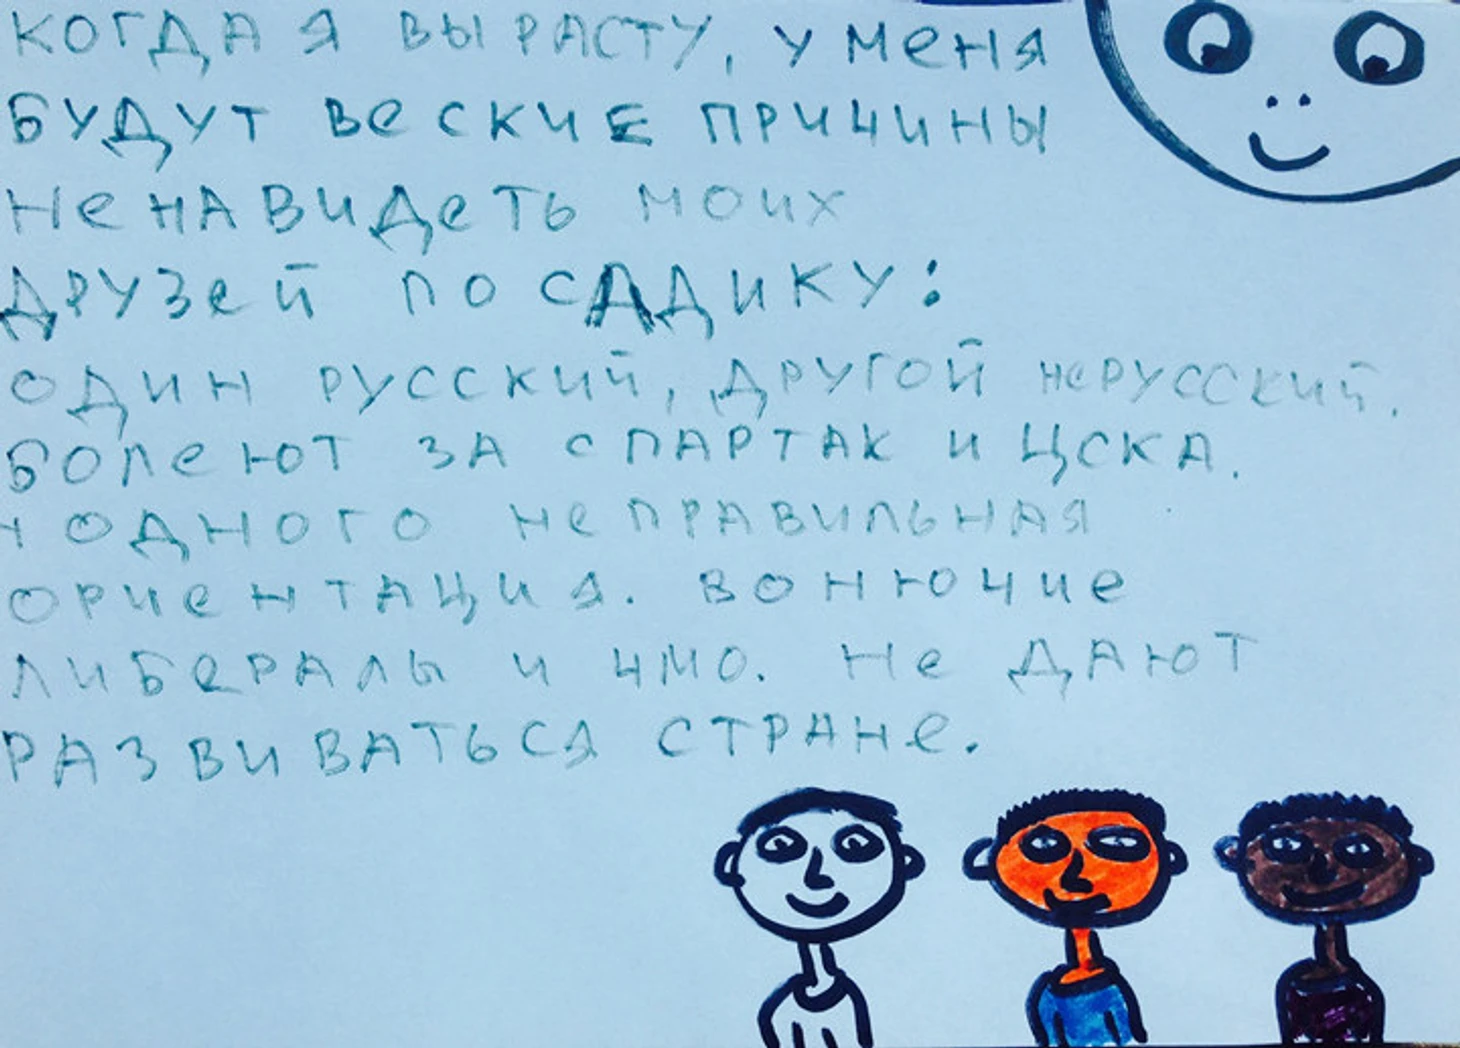 КОГДА Я ВЫРАСТУ, У МЕНЯ
БУДУТ ВЕСКИЕ ПРИЧИНЫ
НЕНАВИДЕТЬ МОИХ
ДРУЗЕЙ ПО САДИКУ:
ОДИН РУССКИЙ, ДРУГОЙ НЕРУССКИЙ.
БОЛЕЮТ ЗА СПАРТАК И ЦСКА.
У ОДНОГО НЕПРАВИЛЬНАЯ
ОРИЕНТАЦИЯ. ВОНЮЧИЕ
ЛИБЕРАЛЫ И ЧМО. НЕ ДАЮТ
РАЗВИВАТЬСЯ СТРАНЕ.